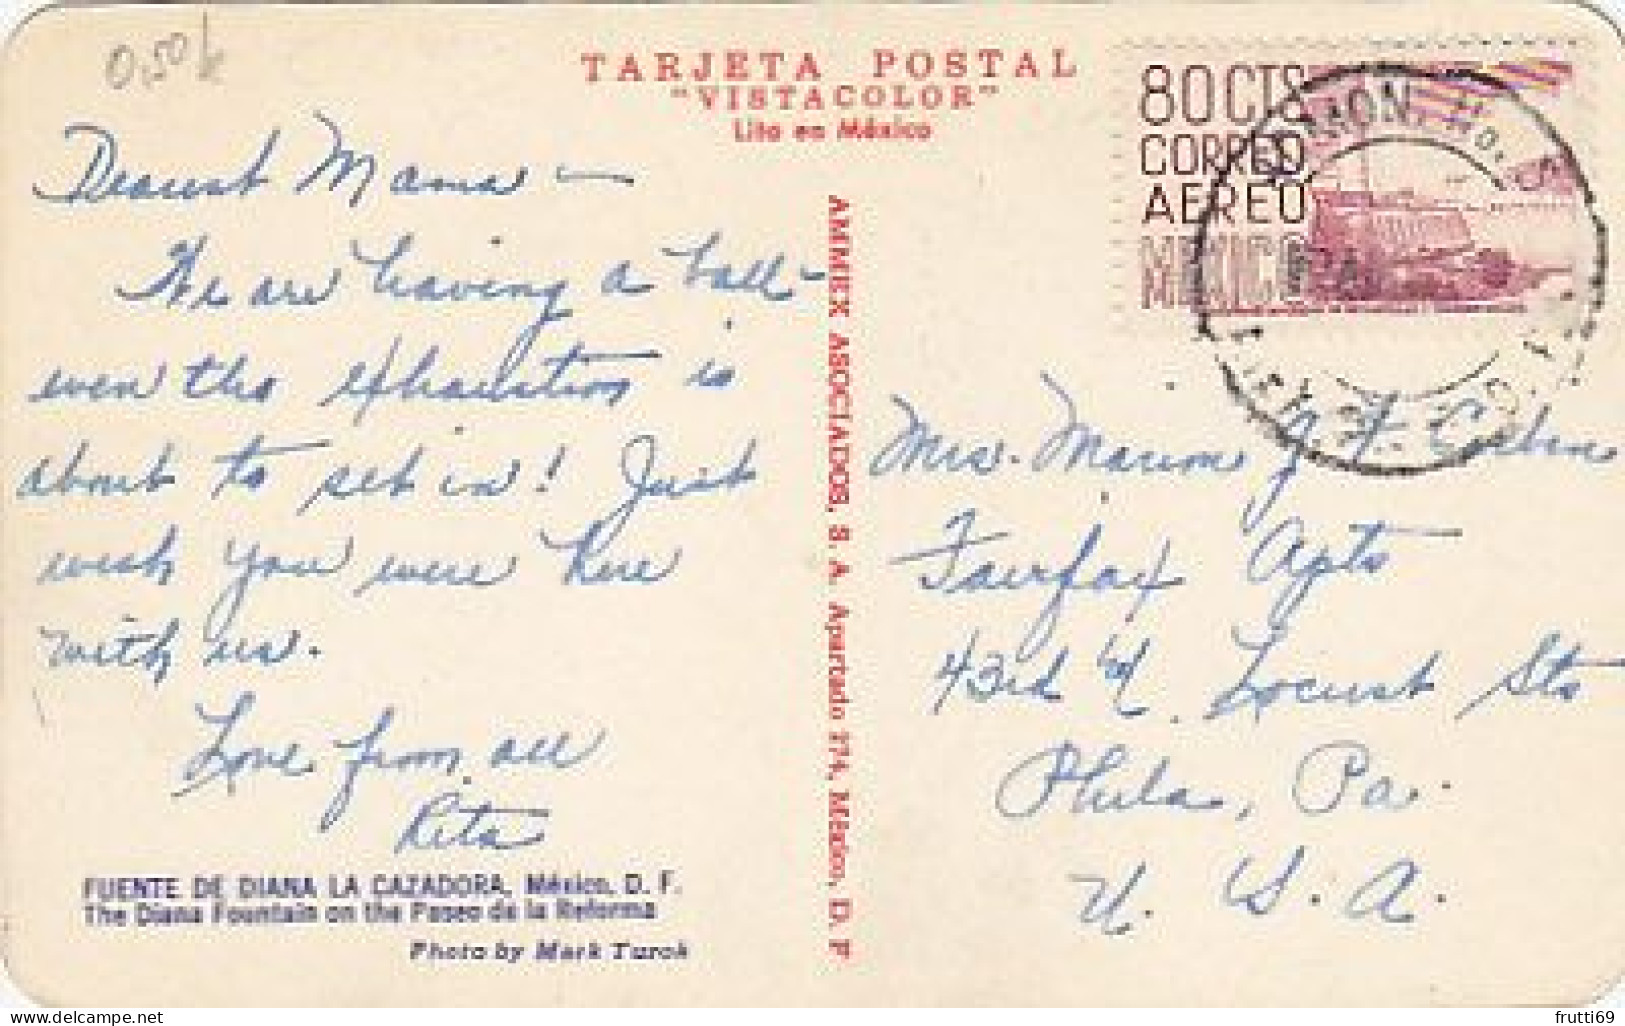 0,50
TARJETA POSTAL
"VISTACOLOR"
Lito en México
80 CTS
CORREO
AEREO
MEXICO
Dearest Mama —
We are having a ball –
even tho exhaustion is
about to set in! Just
wish you were here
with us.
Love from all
Rita
FUENTE DE DIANA LA CAZADORA, México, D. F.
The Diana Fountain on the Paseo de la Reforma
Photo by Mark Turok
AMMEX ASOCIADOS, S. A. Apartado 774, México, D. F
Mrs. Marion J.
Fairfax Apts
43rd & Locust Sts
Phila, Pa.
U. S. A.
frutti69
www.delcampe.net